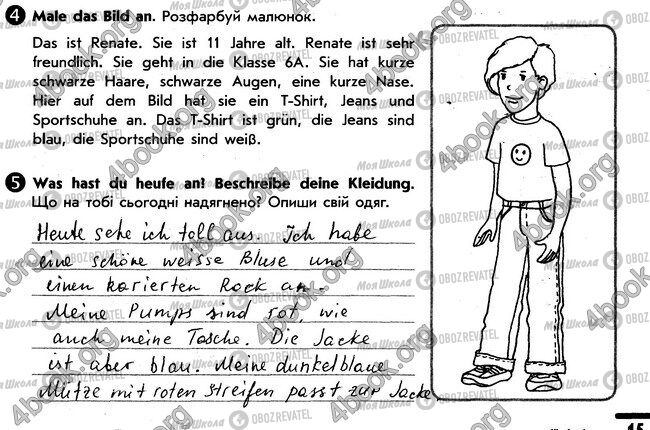 4 Male das Bild an. Розфарбуй малюнок.
Das ist Renate. Sie ist 11 Jahre alt. Renate ist sehr
freundlich. Sie geht in die Klasse 6A. Sie hat kurze
schwarze Haare, schwarze Augen, eine kurze Nase.
Hier auf dem Bild hat sie ein T-Shirt, Jeans und
Sportschuhe an. Das T-Shirt ist grün, die Jeans sind
blau, die Sportschuhe sind weiß.
5 Was hast du heute an? Beschreibe deine Kleidung.
Що на тобі сьогодні надягнено? Опиши свій одяг.
Heute sehe ich toll aus. Ich habe
eine schöne weisse Bluse und
einen karierten Rock an.
Meine Pumps sind rot, wie
auch meine Tasche. Die Jacke
ist aber blau. Meine dunkelblaue
Mütze mit roten Streifen passt zur Jacke
15